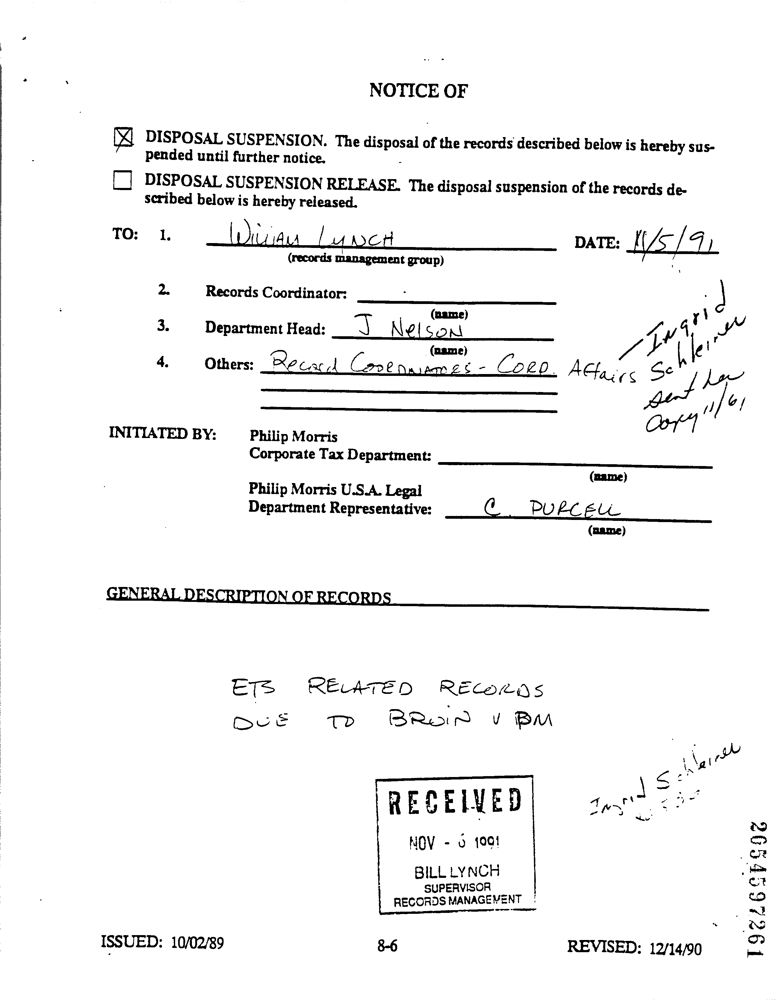 NOTICE OF
DISPOSAL SUSPENSION. The disposal of the records described below is hereby sus-
pended until further notice.
DISPOSAL SUSPENSION RELEASE. The disposal suspension of the records de-
scribed below is hereby released.
TO: 1. William Lynch DATE: 11/5/91
(records management group)
2. Records Coordinator:
(name)
3. Department Head: J Nelson
(name)
4. Others: Record Coordinators - Corp. Affairs
Ingrid
Schleiner
sent her
copy 11/6/
INITIATED BY: Philip Morris
Corporate Tax Department:
(name)
Philip Morris U.S.A. Legal
Department Representative: C. PURCELL
(name)
GENERAL DESCRIPTION OF RECORDS
ETS RELATED RECORDS
DUE TO BROIN V PM
Ingrid Schleiner
RECEIVED
NOV - 1991
BILL LYNCH
SUPERVISOR
RECORDS MANAGEMENT
2654597261
ISSUED: 10/02/89 8-6 REVISED: 12/14/90